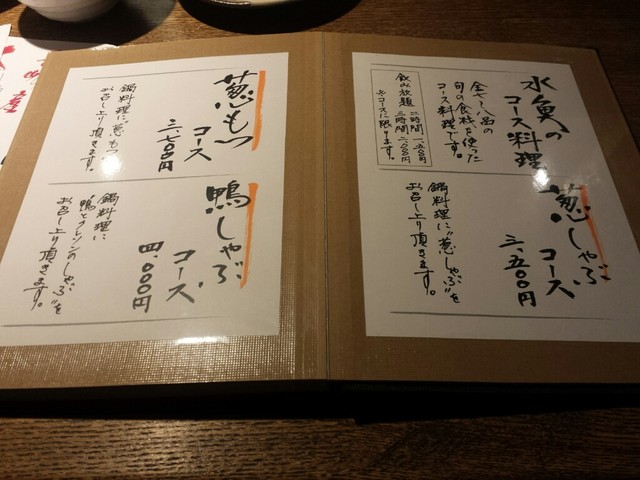 水魚の
コース料理
全七品の
旬の食材を使った
コース料理です。
飲み放題
二時間 一、五〇〇円
三時間 二、〇〇〇円
※コースに限ります。
葱しゃぶ
コース
三、五〇〇円
鍋料理に“葱しゃぶ”を
お召し上り頂きます。
葱もつ
コース
三、七〇〇円
鍋料理に“葱もつ”
お召し上り頂きます。
鴨しゃぶ
コース
四、〇〇〇円
鍋料理に
“鴨とクレソンのしゃぶ”を
お召し上り頂きます。